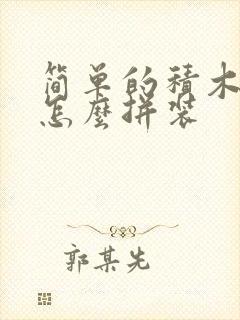 简单的積木
怎麼拼装
郭某先